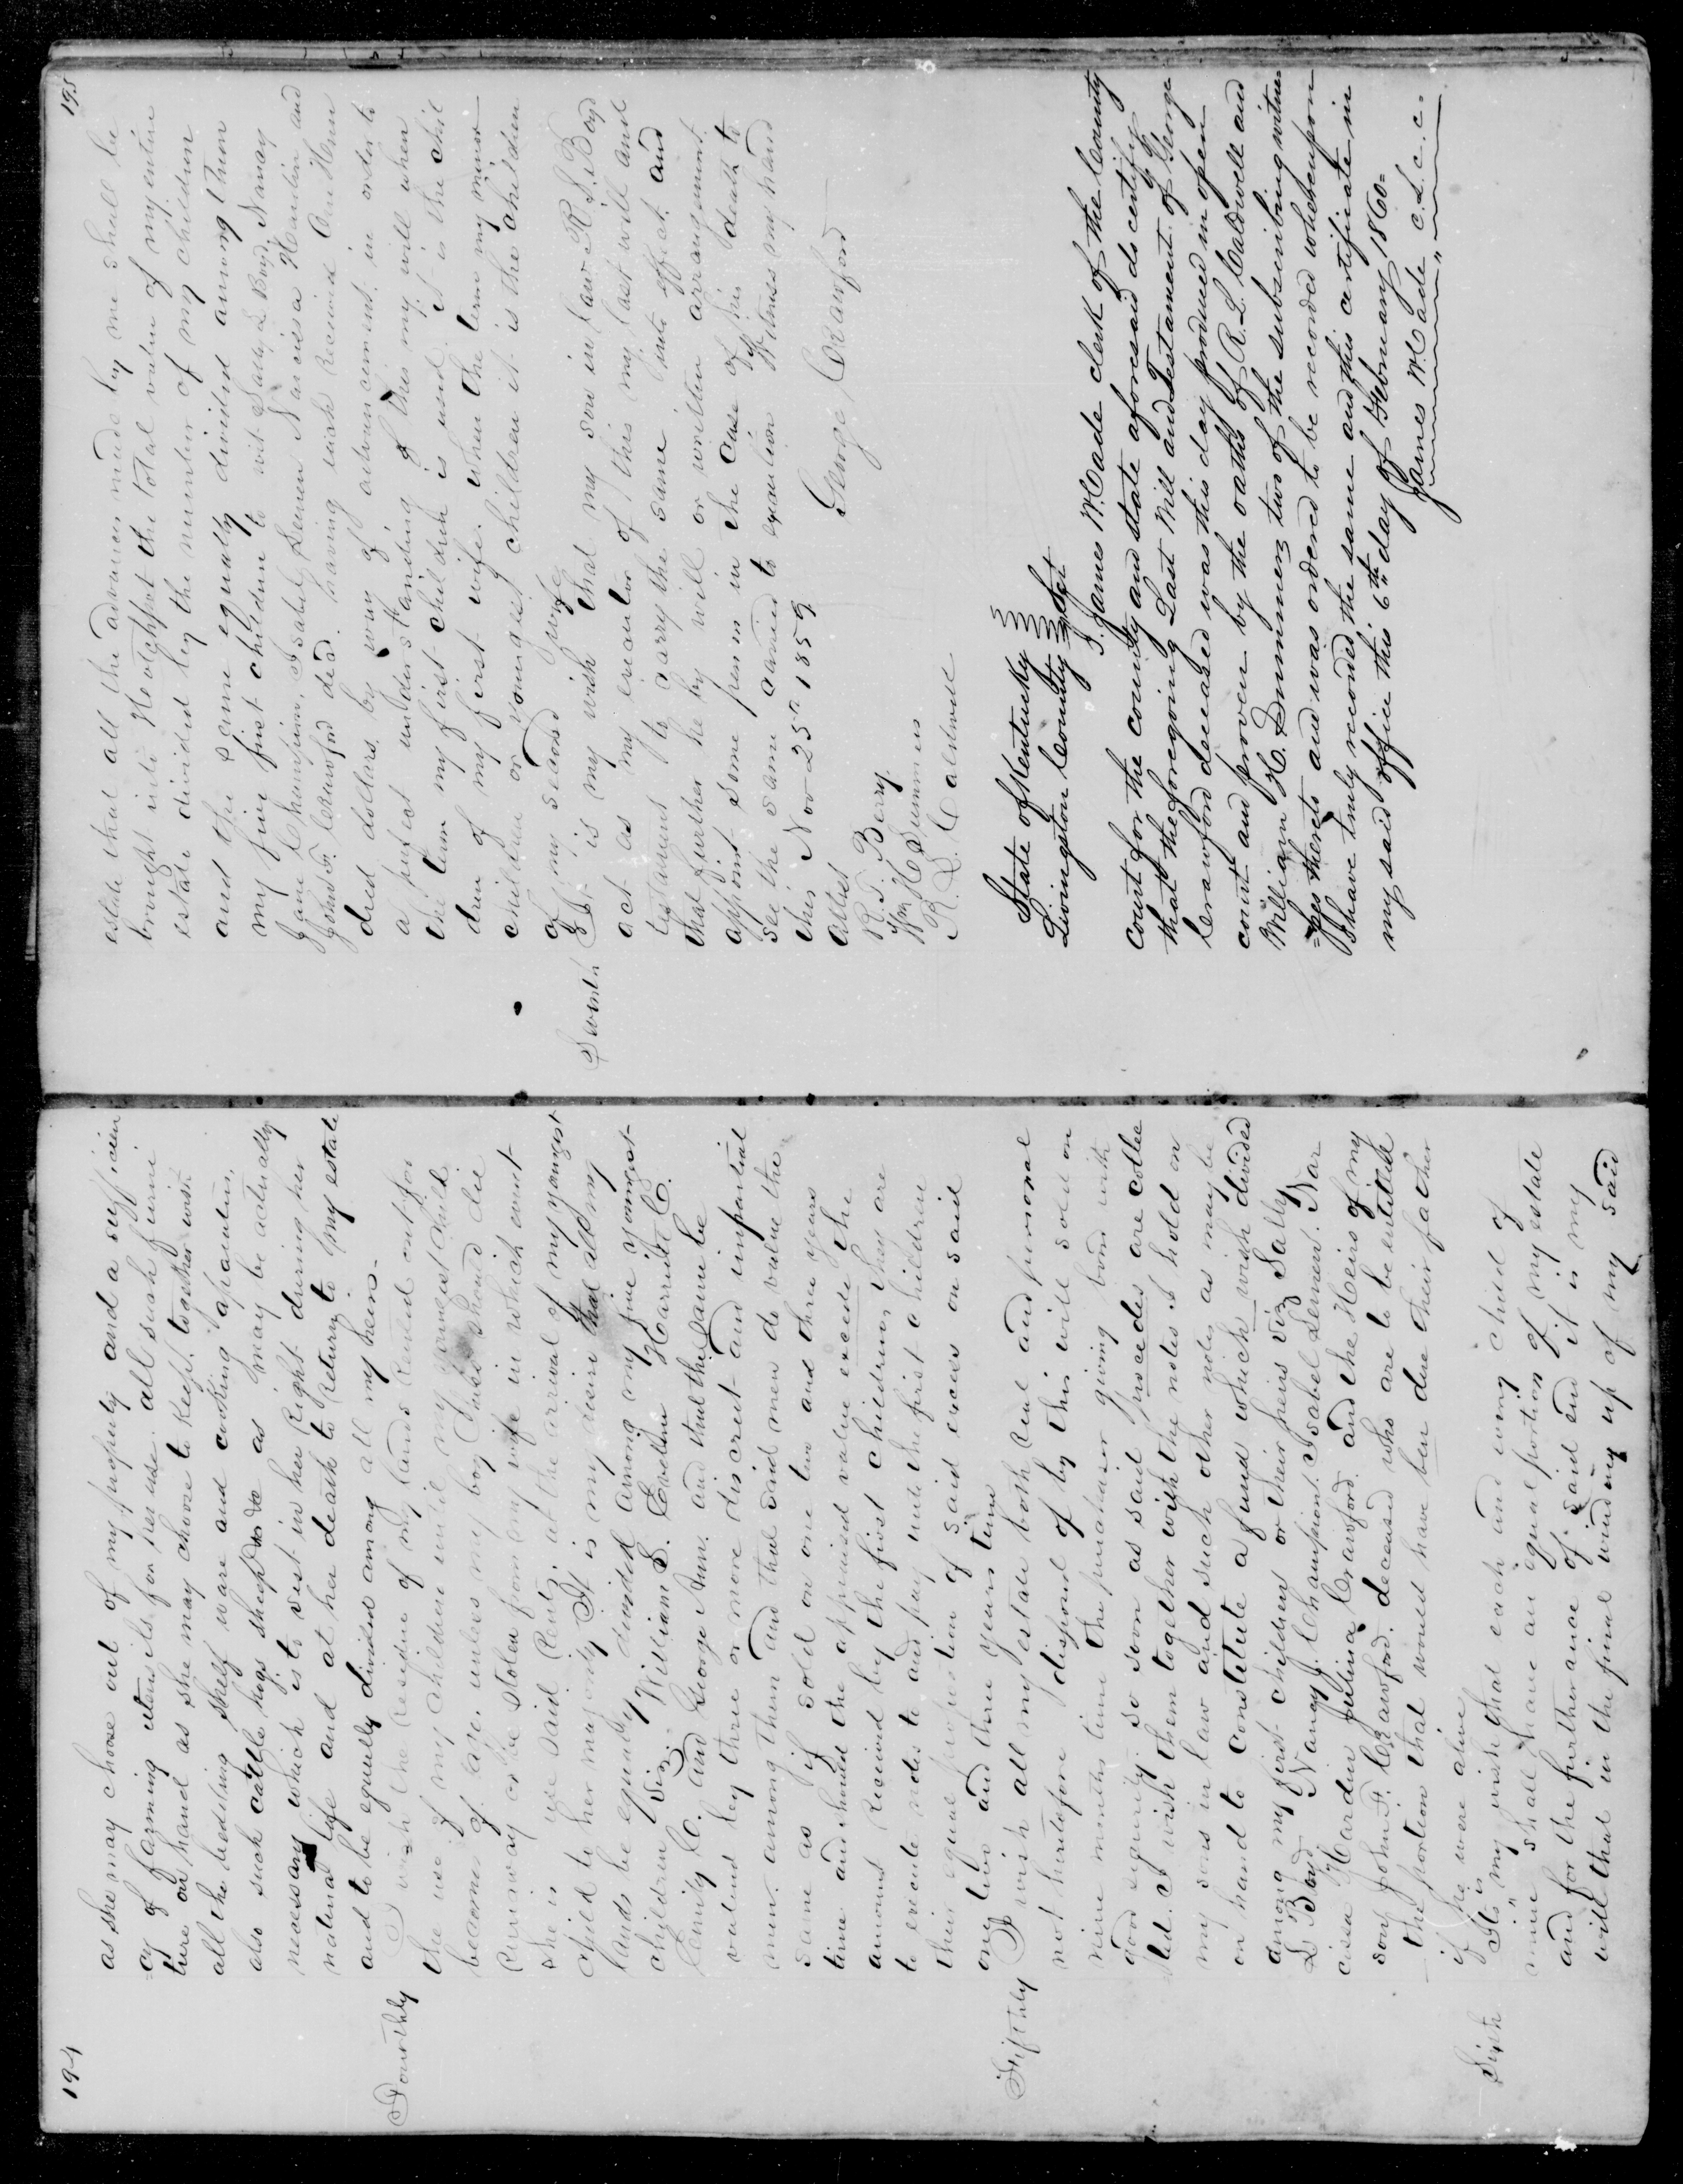 194
as she may chose out of my property and a sufficien
cy of farming utensils for her use. all such furni
ture on hand as she may choose to keep, together with
all the bedding shelf ware and cooking aparatus,
also such cattle hogs sheep &c &c as may be actually
necessary which is to vest in her Right during her
natural life and at her death to Return to my estate
and to be equally divided among all my heirs.
Fourthly I wish the residue of my lands Rented out for
the use of my children until my youngest child
becomes of age, unless my boy should die
runaway or be stolen from my wife in which event
she is use said Rents, at the arrival of my youngest
child to her majority It is my desire that all my
lands be equally divided among my five youngest
children viz. William S. Eveline Harriet C.
Emily C. and George Ann. and that the same be
valued by three or more discreet and impartial
men. among them and that said men do value the
same as if sold on one two and three years
time and should the appraised value excede the
amount Received by the first children, they are
to execute notes to and pay unto the first children
their equal proportion of said excess on said
one two and three years time
Fifthly I wish all my estate both Real and personal
not heretofore disposed of by this will sold on
nine months time the purchaser giving bond with
good security. so soon as said procedes are collec
ted. I wish them together with the notes I hold on
my sons in law and such other notes as may be
on hand to constitute a fund which I wish divided
among my first children or their heirs viz Sally
L Boyd Nancy J. Champion. Isabel Lemen. Nar
cissa Hardin Julina Crawford. and the Heirs of my
son John F. Crawford. deceased who are to be entitled
the portion that would have been due their father
if he were alive
Sixth It is my wish that each and every child of
mine shall have an equal portion of my estate
and for the furtherance of said end it is my
will that in the final winding up of my said
195
estate that all the advances made by me shall be
brought into Hotchpot the total value of my entire
estate divided by the number of my children
and the same equally divided among them
my five first children to wit Sally L Boyd, Nancy
Jane Champion, Isabel Lemen Narcissa Hardin and
John F. Crawford decd. having each Received One Hun
dred dollars by way of advancement, in order to
a perfect understanding of this my will when
the term my first children is used. it is the chil
dren of my first wife. when the term my minor
children or youngest children it is the children
of my second wife
Seventh It is my wish that my son in law R. S. Boyd
act as my executor of this my last will and
testament to carry the same into effect and
that further he by will or written arrangement
appoint some person in the case of his death to
see the same carried to execution Witness my hand
this Nov 25th 1859
Attest George Crawford
R. T. Berry.
Wm H Dunmers
R. L. Caldwell
State of Kentucky
Livingston County Sct
I. James W. Cade clerk of the County
Court for the county and state aforesaid do certify
that the foregoing Last Will and Testament of George
Crawford deceased was this day produced in open
court and proven by the oaths of R. L. Caldwell and
William H. Dunmers two of the subscribing witnes
=ses thereto and was ordered to be recorded whereupon
I have truly recorded the same and this certificate in
my said office this 6th day of February 1860=
James W. Cade C.L.C.C.